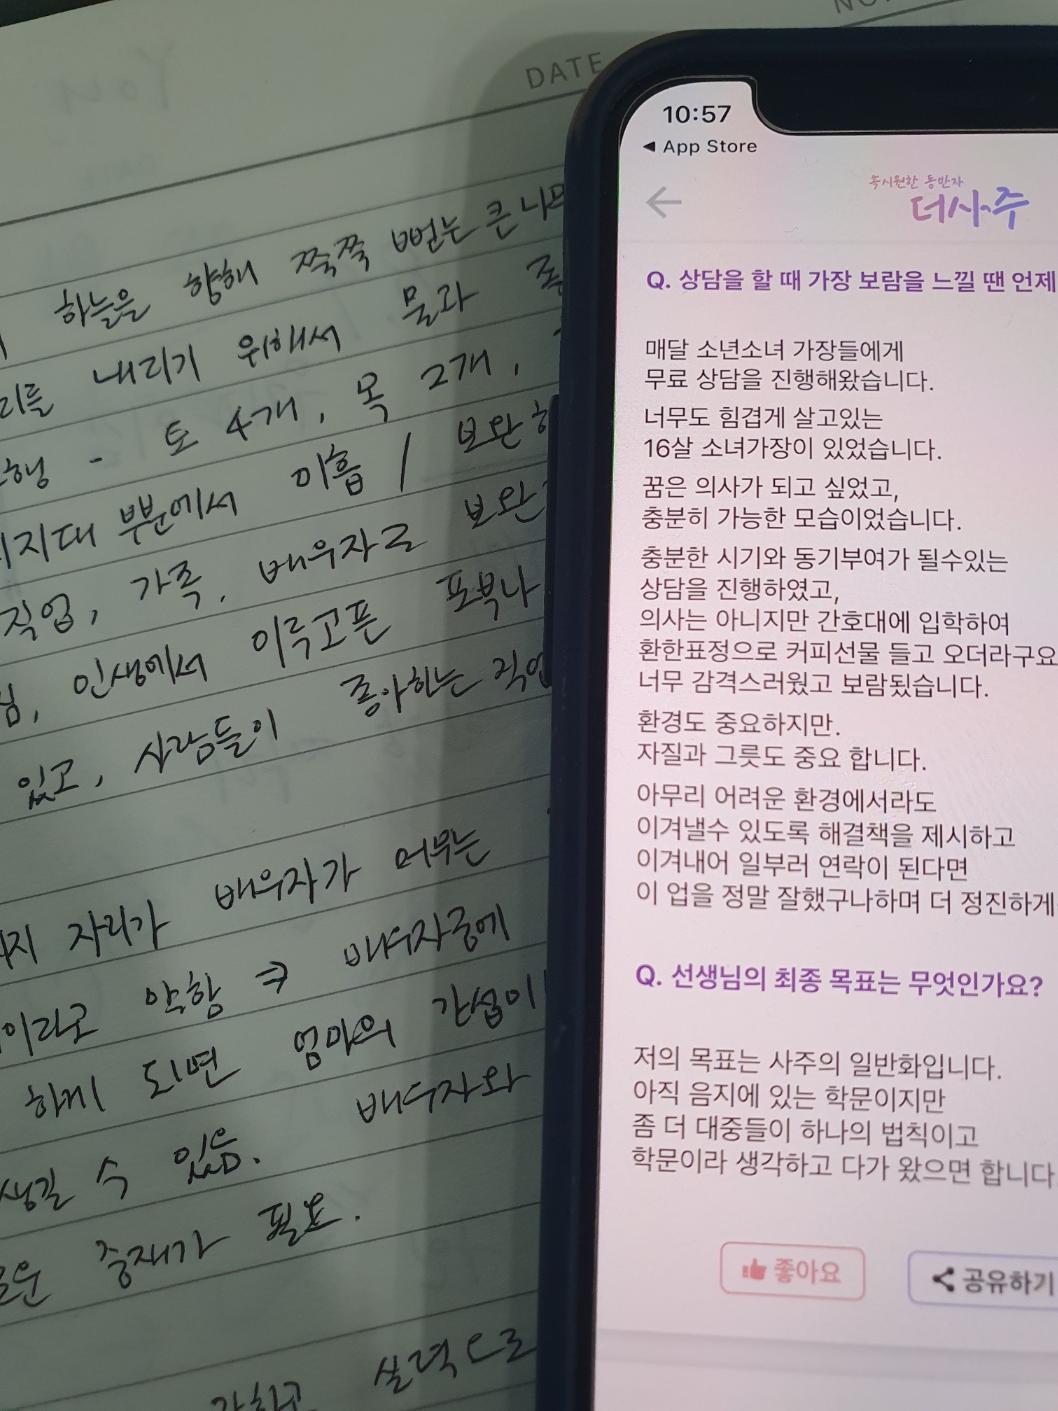 DATE
하늘을 향해 쭉쭉 뻗는 큰 나무
리를 내리기 위해서 물과
오행 - 토 4개, 목 2개,
지지대 부분에서 미흡 / 보완
직업, 가족, 배우자로 보완
인생에서 이루고픈 포부나
있고, 사람들이 좋아하는 직업
자리가 배우자가 머무는
이라고 약함 → 배우자궁에
하게 되면 엄마의 간섭이
생길 수 있음. 배우자와
중재가 필요.
강하고 실력으로
10:57
◀ App Store
←
속시원한 동반자
더사주
Q. 상담을 할 때 가장 보람을 느낄 땐 언제
매달 소년소녀 가장들에게
무료 상담을 진행해왔습니다.
너무도 힘겹게 살고있는
16살 소녀가장이 있었습니다.
꿈은 의사가 되고 싶었고,
충분히 가능한 모습이었습니다.
충분한 시기와 동기부여가 될수있는
상담을 진행하였고,
의사는 아니지만 간호대에 입학하여
환한표정으로 커피선물 들고 오더라구요
너무 감격스러웠고 보람됐습니다.
환경도 중요하지만.
자질과 그릇도 중요 합니다.
아무리 어려운 환경에서라도
이겨낼수 있도록 해결책을 제시하고
이겨내어 일부러 연락이 된다면
이 업을 정말 잘했구나하며 더 정진하게
Q. 선생님의 최종 목표는 무엇인가요?
저의 목표는 사주의 일반화입니다.
아직 음지에 있는 학문이지만
좀 더 대중들이 하나의 법칙이고
학문이라 생각하고 다가 왔으면 합니다
좋아요
공유하기